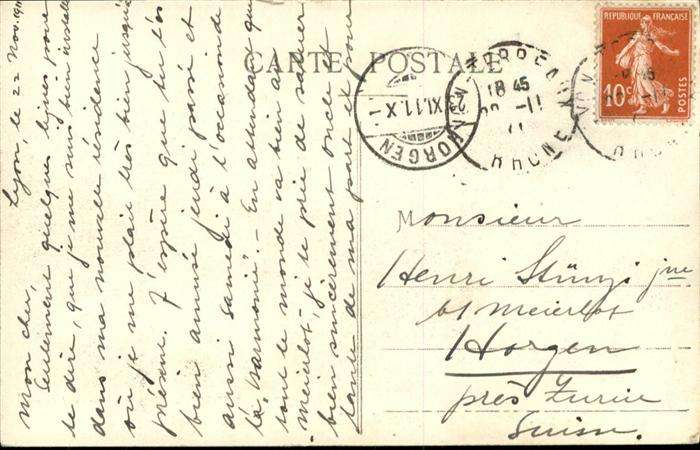 CARTE POSTALE
Lyon, le 22 Nov. 1911
Mon cher,
Seulement quelques lignes pour
te dire, que je me suis bien installé
dans ma nouvelle résidence
où je me plait très bien jusqu'à
présent. J'espère que tu t'es
bien amusé jeudi passé et
aussi samedi à l'occasion de
la "harmonie". - En attendant que
tout le monde va bien au
"meierhof", je te prie de saluer
bien sincèrement oncle et
tante de ma part et pour
RÉPUBLIQUE FRANÇAISE
10c
POSTES
HORGEN
23.XI.11.X
LYON-TERREAUX
18 45
22 -11
11
RHONE
Monsieur
Henri Stünzi jne
bt Meierhof
Horgen
près Zurich
Suisse.